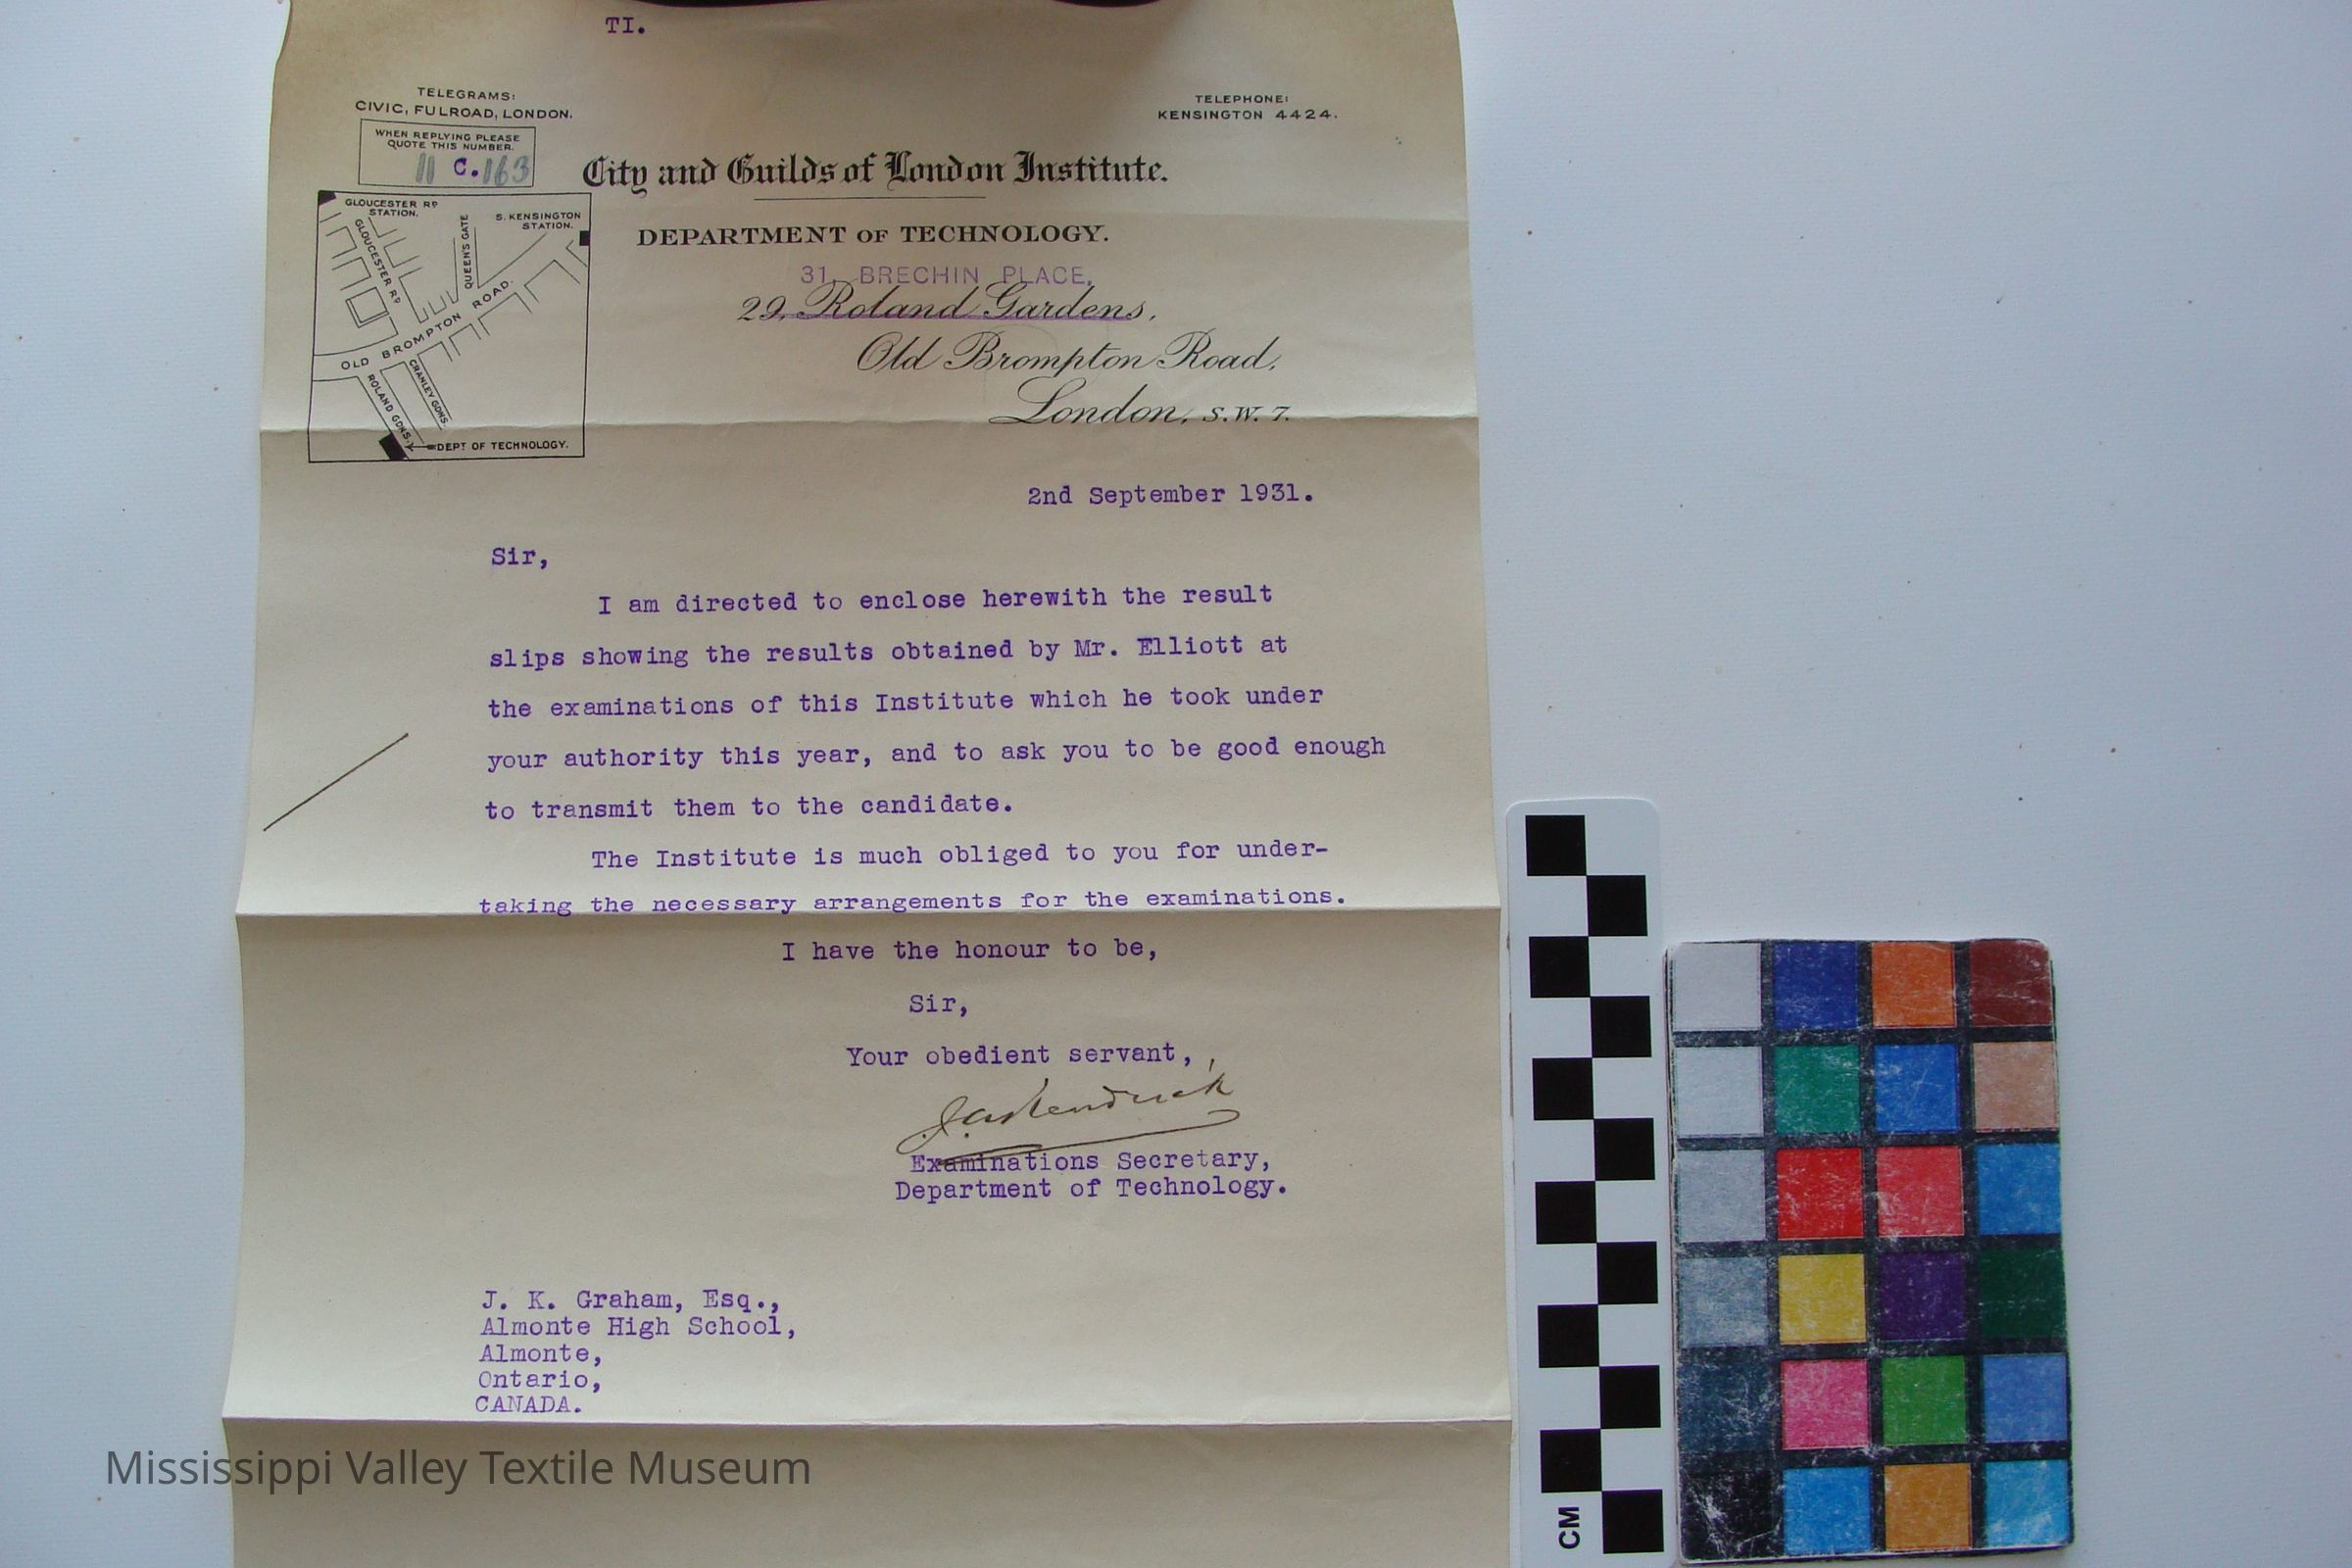 TI.
TELEGRAMS:
CIVIC, FULROAD, LONDON.
TELEPHONE:
KENSINGTON 4424.
WHEN REPLYING PLEASE
QUOTE THIS NUMBER.
11 C.163
City and Guilds of London Institute.
DEPARTMENT OF TECHNOLOGY.
31, BRECHIN PLACE,
29, Roland Gardens,
Old Brompton Road,
London, S.W. 7.
GLOUCESTER RD
STATION.
S. KENSINGTON
STATION.
GLOUCESTER RD
QUEEN'S GATE
OLD BROMPTON ROAD.
ROLAND GDNS.
CRANLEY GDNS.
DEPT OF TECHNOLOGY.
2nd September 1931.
Sir,
I am directed to enclose herewith the result
slips showing the results obtained by Mr. Elliott at
the examinations of this Institute which he took under
your authority this year, and to ask you to be good enough
to transmit them to the candidate.
The Institute is much obliged to you for under-
taking the necessary arrangements for the examinations.
I have the honour to be,
Sir,
Your obedient servant,
Examinations Secretary,
Department of Technology.
J. K. Graham, Esq.,
Almonte High School,
Almonte,
Ontario,
CANADA.
CM
Mississippi Valley Textile Museum